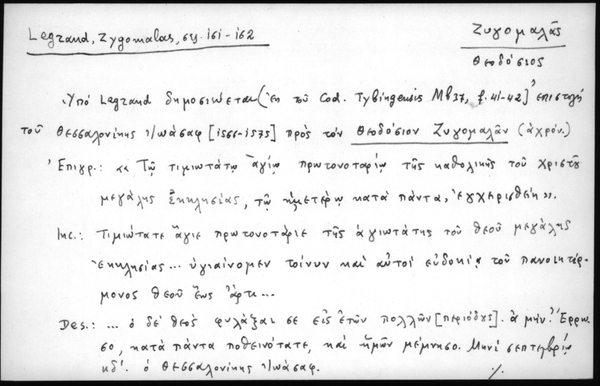 Legrand, Zygomalas, σς. 151-152
Ζυγομαλᾶς
Θεοδόσιος
Ὑπὸ Legrand δημοσιεύεται (ἐκ τοῦ Cod. Tybingensis Mb 37, f. 41-42) ἐπιστολὴ
τοῦ Θεσσαλονίκης Ἰωάσαφ [1566-1575] πρὸς τὸν Θεοδόσιον Ζυγομαλᾶν (ἀχρόν.)
Ἐπιγρ.: «Τῷ τιμιωτάτῳ ἁγίῳ πρωτονοταρίῳ τῆς καθολικῆς τοῦ Χριστοῦ
μεγάλης Ἐκκλησίας, τῷ ἡμετέρῳ κατὰ πάντα, ἐγχειρισθείη».
Inc.: Τιμιώτατε ἅγιε πρωτονοτάριε τῆς ἁγιωτάτης τοῦ Θεοῦ μεγάλης
Ἐκκλησίας... ὑγιαίνομεν τοίνυν καὶ αὐτοὶ εὐδοκίᾳ τοῦ πανοικτίρ-
μονος Θεοῦ ἕως ἄρτι...
Des.: ... ὁ δὲ θεὸς φυλάξαι σε εἰς ἐτῶν πολλῶν [περιόδους]. ἀμήν. Ἔρρω-
σο, κατὰ πάντα ποθεινότατε, καὶ ἡμῶν μέμνησο. Μηνὶ σεπτεμβρίῳ
κδʹ. ὁ Θεσσαλονίκης Ἰωάσαφ.
./.